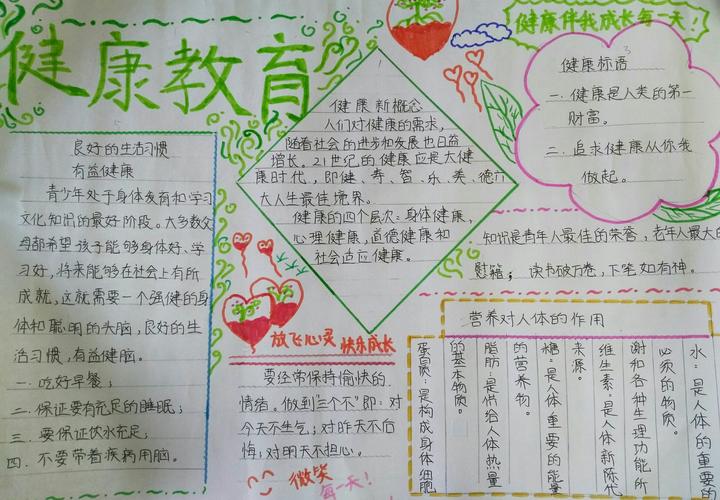 健康教育
健康伴我成长每一天!
良好的生活习惯
有益健康
青少年处于身体发育和学习
文化知识的最好阶段。大多数父
母都希望孩子能够身体好、学
习好,将来能够在社会上有所
成就,这就需要一个强健的身
体和聪明的头脑,良好的生
活习惯,有益健脑。
一.吃好早餐;
二.保证要有充足的睡眠;
三.要保证饮水充足;
四.不要带着疾病用脑。
健康新概念
人们对健康的需求,
随着社会的进步和发展也日益
增长。21世纪的健康应是大健
康时代,即健、寿、智、乐、美、德六
大人生最佳境界。
健康的四个层次:身体健康,
心理健康,道德健康和
社会适应健康。
健康标语
一.健康是人类的第一
财富。
二.追求健康从你我
做起。
知识是青年人最佳的荣誉,老年人最大的
慰籍;读书破万卷,下笔如有神。
放飞心灵 快乐成长
要经常保持愉快的
情绪。做到“三个不”即:对
今天不生气;对昨天不后
悔;对明天不担心。
微笑
每一天!
营养对人体的作用
水:是人体的重要的
必须的物质。
谢和各种生理功能所
维生素:是人体新陈代
来源。
糖:是人体重要的能量
的营养物。
脂肪:是供给人体热量
的基本物质。
蛋白质:是构成身体细胞